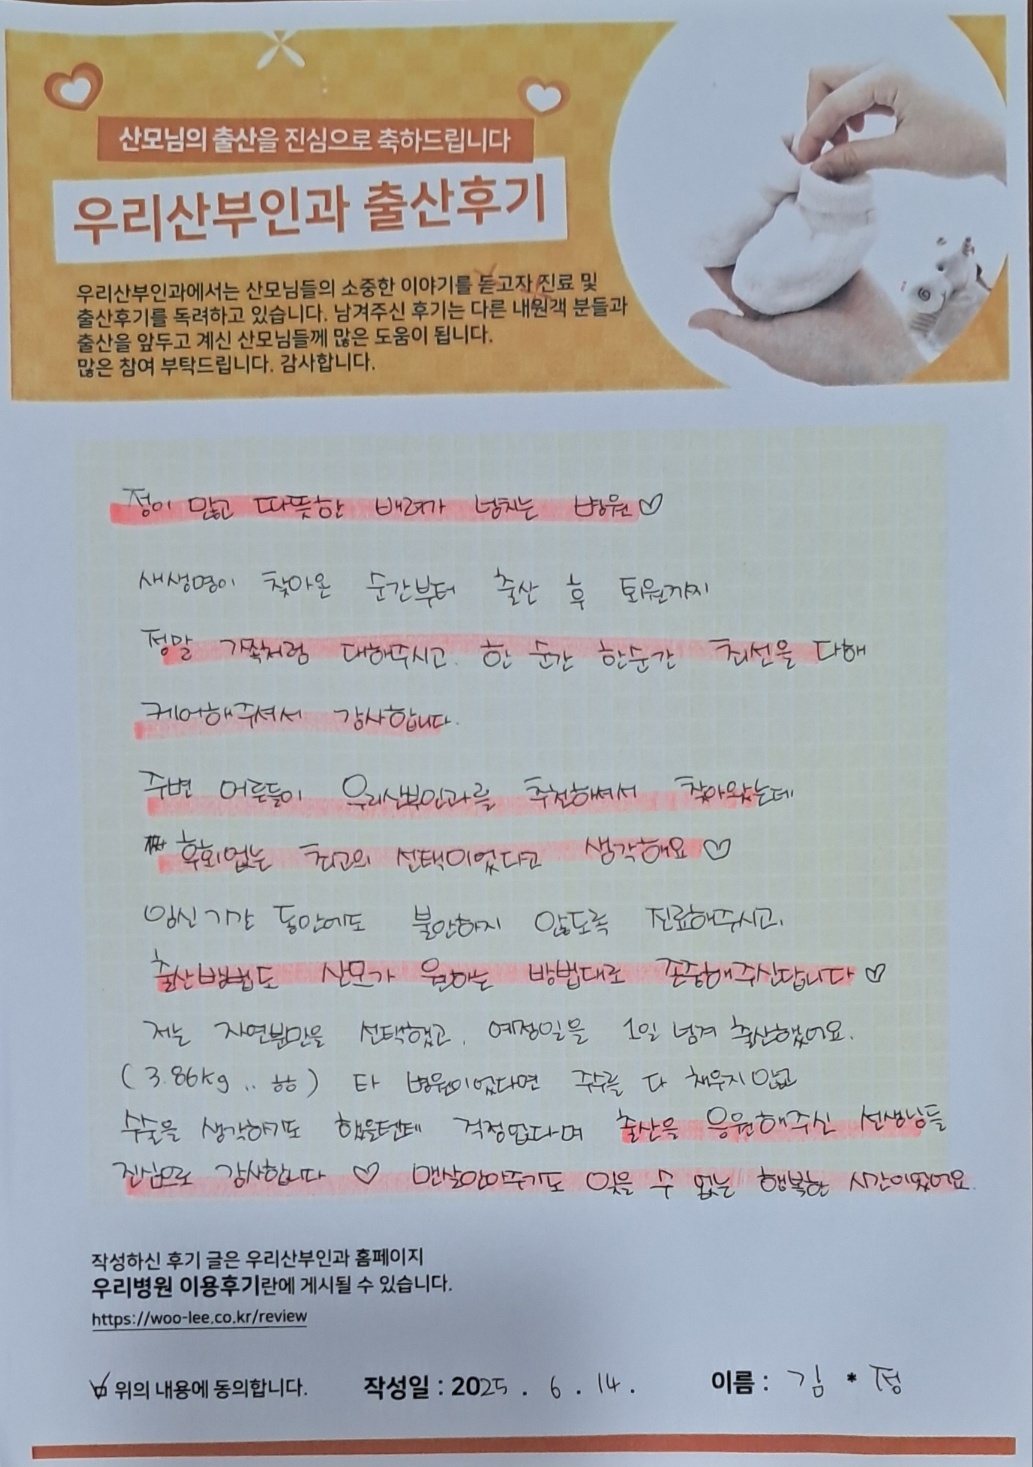 산모님의 출산을 진심으로 축하드립니다
우리산부인과 출산후기
우리산부인과에서는 산모님들의 소중한 이야기를 듣고자 진료 및
출산후기를 독려하고 있습니다. 남겨주신 후기는 다른 내원객 분들과
출산을 앞두고 계신 산모님들께 많은 도움이 됩니다.
많은 참여 부탁드립니다. 감사합니다.
정이 많고 따뜻한 배려가 넘치는 병원♡
새생명이 찾아온 순간부터 출산 후 퇴원까지
정말 가족처럼 대해주시고. 한 순간 한순간 최선을 다해
케어해주셔서 감사합니다.
주변 어른들이 우리산부인과를 추천하셔서 찾아왔는데
후회없는 최고의 선택이었다고 생각해요♡
임신기간 동안에도 불안하지 않도록 진료해주시고,
출산방법도 산모가 원하는 방법대로 존중해주신답니다♡
저는 자연분만을 선택했고, 예정일을 1일 넘겨 출산했어요.
(3.86kg .. ㅎㅎ) 타 병원이었다면 주수를 다 채우지 않고
수술을 생각하기도 했을텐데 걱정없다며 출산을 응원해주신 선생님들
진심으로 감사합니다 ♡ 맨살안아주기도 잊을 수 없는 행복한 시간이었어요.
작성하신 후기 글은 우리산부인과 홈페이지
우리병원 이용후기란에 게시될 수 있습니다.
https://woo-lee.co.kr/review
위의 내용에 동의합니다. 작성일 : 2025 . 6 . 14 . 이름 : 김 * 정